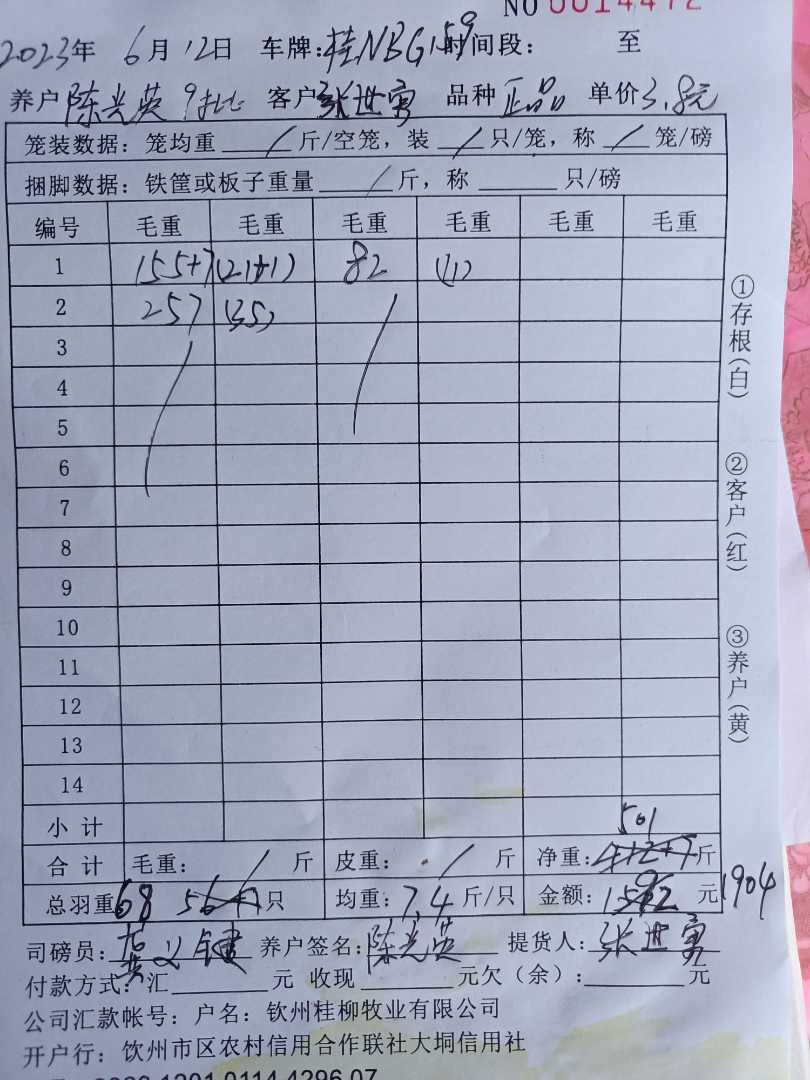 NO 0014472
2023年 6月12日 车牌:桂NBG159 时间段: 至
养户 陈光英 9批 客户 张世勇 品种 正品 单价 3.8元
笼装数据: 笼均重 / 斤/空笼, 装 / 只/笼, 称 / 笼/磅
捆脚数据: 铁筐或板子重量 / 斤, 称 只/磅
编号 毛重 毛重 毛重 毛重 毛重 毛重
1 155+7 (21+1) 82 (11)
2 257 (35)
3
4
5
6
7
8
9
10
11
12
13
14
小计
501
合计 毛重: / 斤 皮重: / 斤 净重: 412+7 斤
总羽重 68 56+1 只 均重: 7.4 斤/只 金额: 元 1904
司磅员: 义键 养户签名: 陈光英 提货人: 张世勇
付款方式: 汇 元 收现 元欠(余): 元
公司汇款帐号: 户名: 钦州桂柳牧业有限公司
开户行: 钦州市区农村信用合作联社大垌信用社
①存根(白)
②客户(红)
③养户(黄)